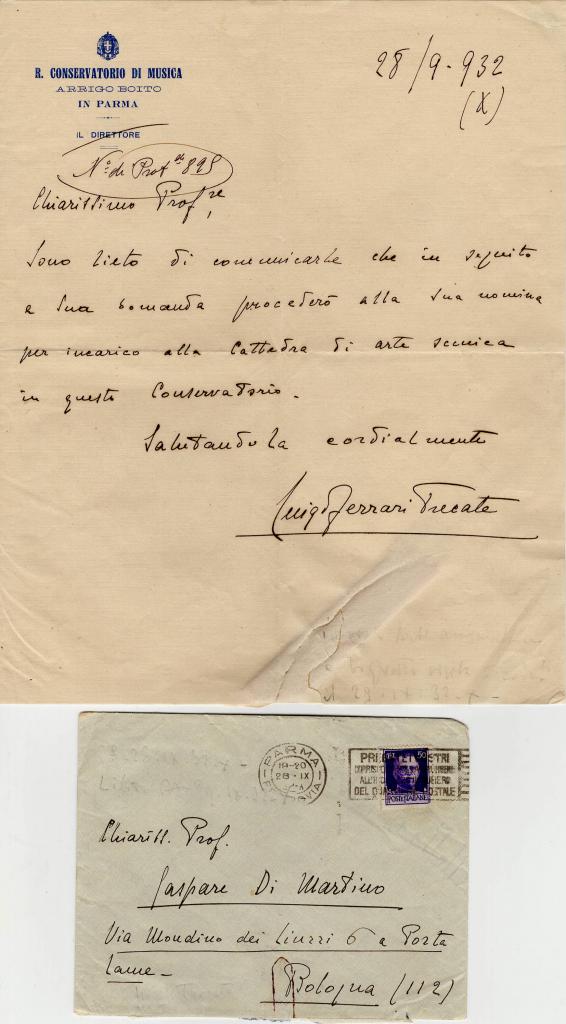 R. CONSERVATORIO DI MUSICA
ARRIGO BOITO
IN PARMA
IL DIRETTORE
28/9-932
(X)
N.º di Prot.llo 895
Chiarissimo Prof.re,
Sono lieto di comunicarle che in seguito
a Sua domanda procederò alla Sua nomina
per incarico alla Cattedra di arte scenica
in questo Conservatorio.
Salutandola cordialmente
Luigi Ferrari Trecate
PARMA
19-20
28·IX
FERROVIA
50
POSTE ITALIANE
DEL POSTALE
Chiariss. Prof.
Gaspare Di Martino
Via Mondino dei Liuzzi 6 a Porta
Lame-
Bologna (112)